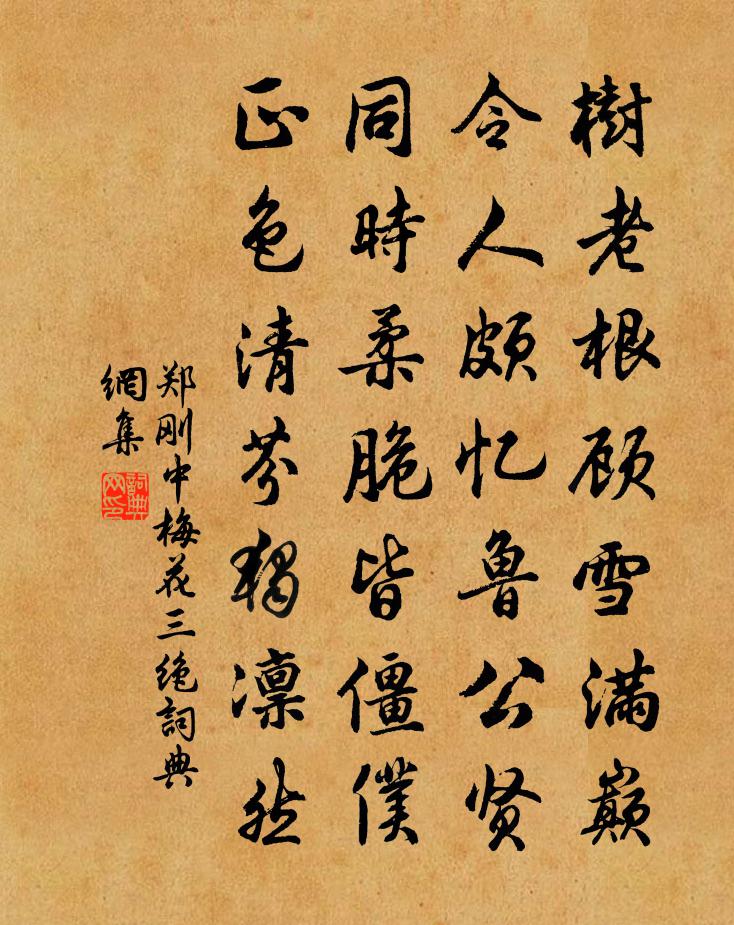 樹老根顾雪满巅
令人颇忆鲁公贤
同時柔脆皆僵僕
正色清芬獨凛然
郑刚中梅花三绝詞典
網集
詞典
网印